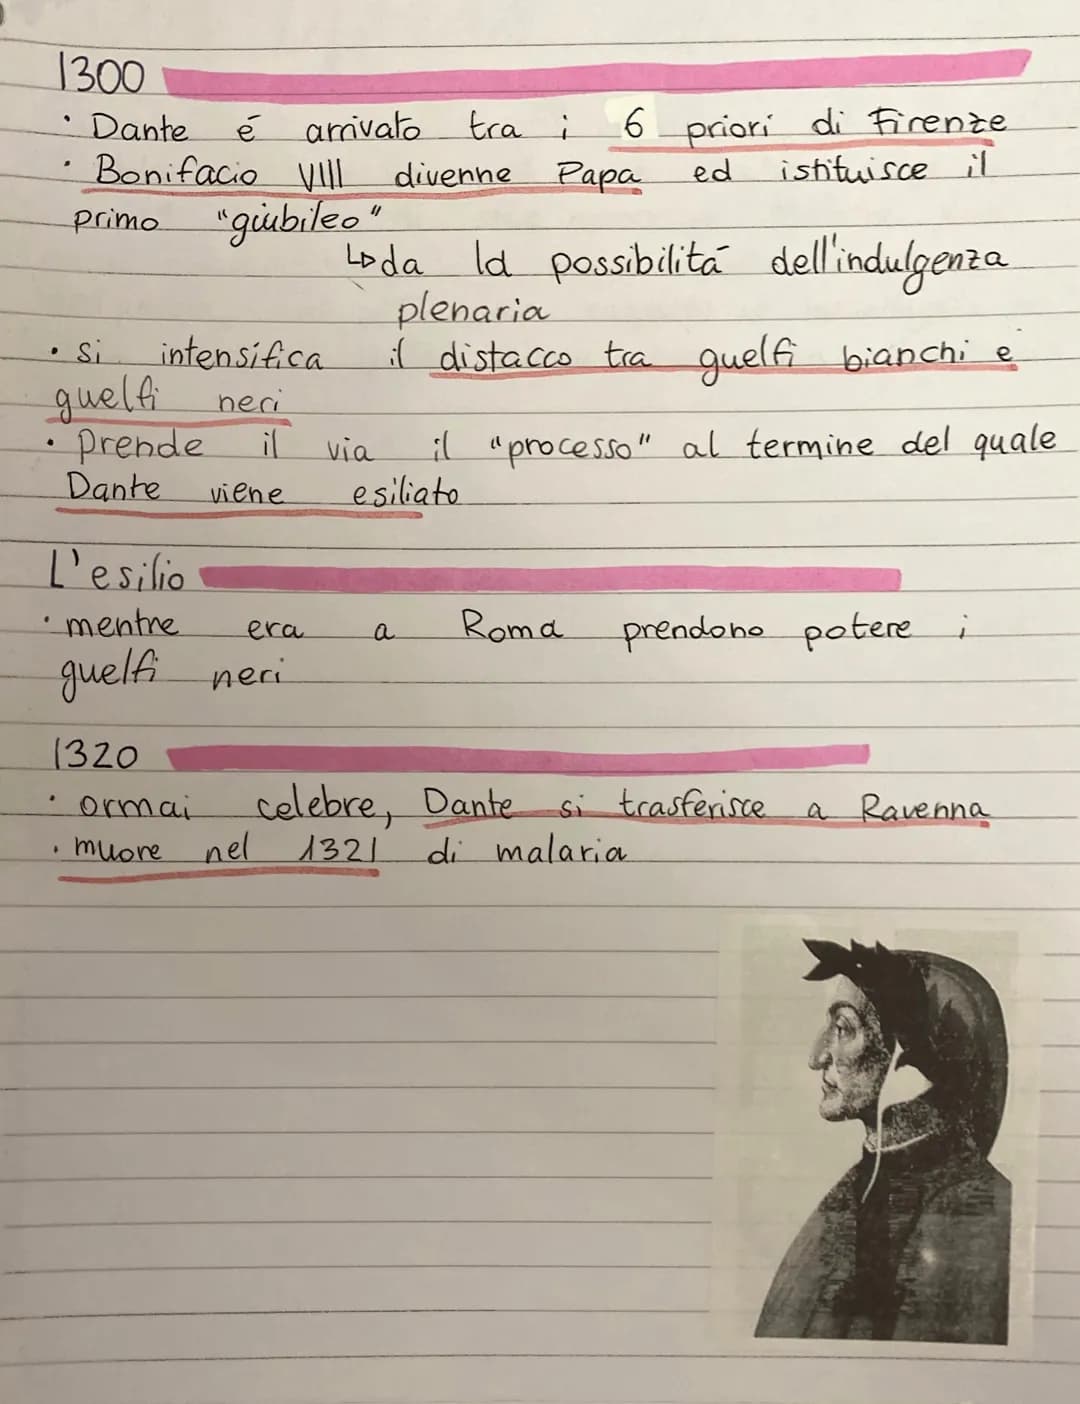 1300
· Dante é arrivato tra i 6 priori di Firenze
· Bonifacio VIII divenne Papa ed istituisce il
primo "giubileo"
↳ da la possibilitá dell'indulgenza
plenaria
· si intensifica il distacco tra guelfi bianchi e
guelfi neri
· Prende il via il "processo" al termine del quale
Dante viene esiliato
L'esilio
· mentre era a Roma prendono potere i
guelfi neri
1320
· ormai celebre, Dante si trasferisce a Ravenna
· muore nel 1321 di malaria